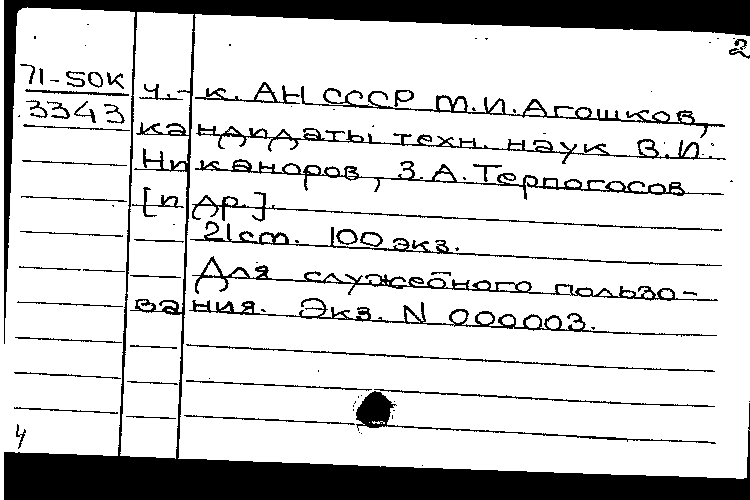 2
71-50К
3343
ч.-к. АН СССР М.И.Агошков,
кандидаты техн. наук В.И.
Никаноров, З.А.Терпогосов
[и др.].
21см. 100 экз.
Для служебного пользо-
вания. Экз. N 000003.
4